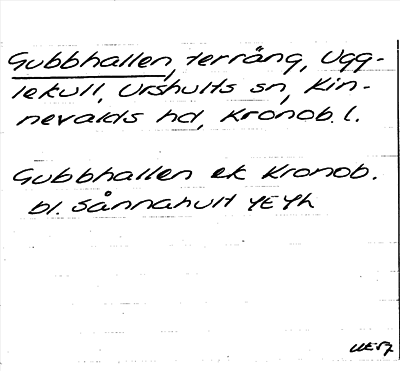 Gubbhallen, terräng, Ugg-
lekull, Urshults sn, Kin-
nevalds hd, Kronob. l.
Gubbhallen ek Kronob.
bl. Sånnahult 4E 4h